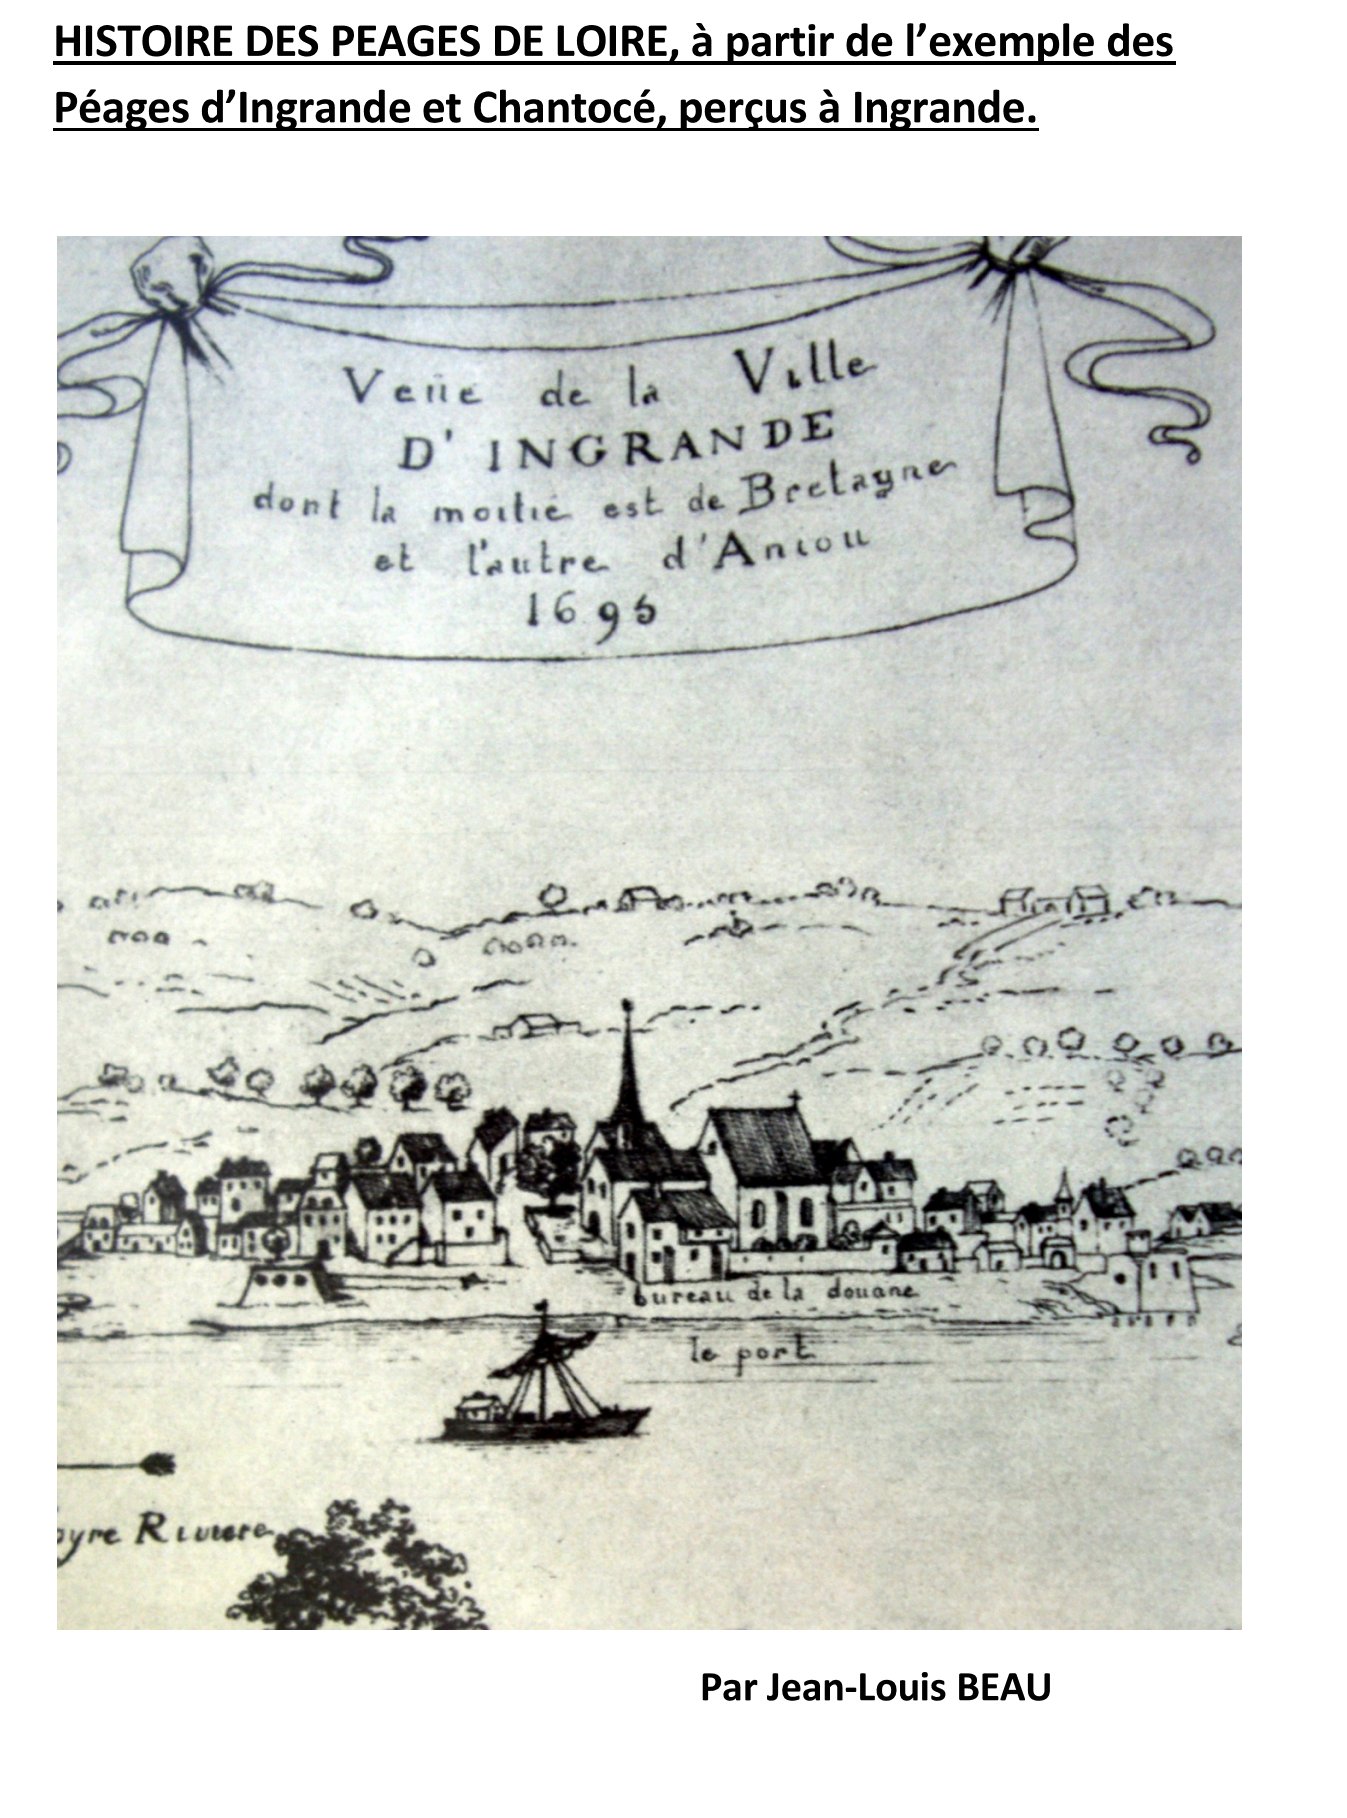 HISTOIRE DES PEAGES DE LOIRE, à partir de l’exemple des
Péages d’Ingrande et Chantocé, perçus à Ingrande.
Veüe de la Ville
D' INGRANDE
dont la moitié est de Bretagne
et l'autre d'Aniou
1695
bureau de la douane
le port
oyre Riviere
Par Jean-Louis BEAU